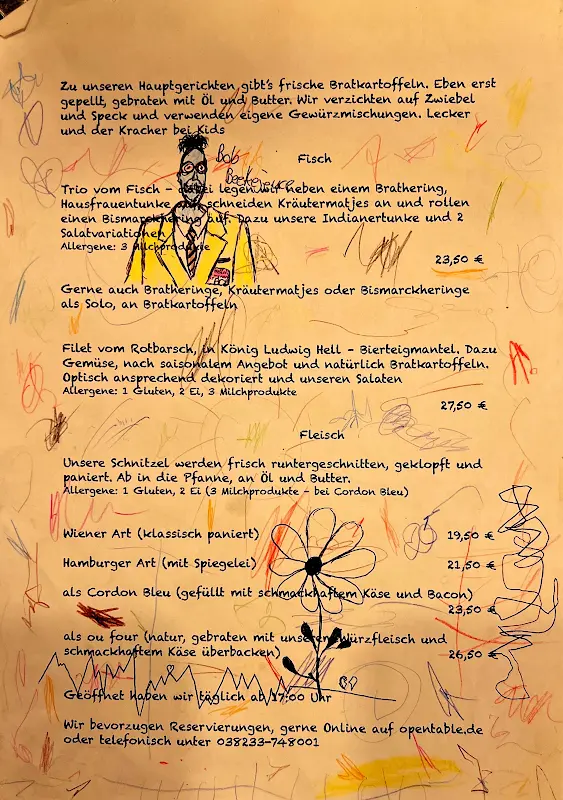 Zu unseren Hauptgerichten gibt's frische Bratkartoffeln. Eben erst
gepellt, gebraten mit Öl und Butter. Wir verzichten auf Zwiebel
und Speck und verwenden eigene Gewürzmischungen. Lecker
und der Kracher bei Kids
Bob
Fisch
Trio vom Fisch - dabei legen wir neben einem Brathering,
Hausfrauentunke auf, schneiden Kräutermatjes an und rollen
einen Bismarckhering auf. Dazu unsere Indianertunke und 2
Salatvariationen
Allergene: 3 Milchprodukte
23,50 €
Gerne auch Bratheringe, Kräutermatjes oder Bismarckheringe
als Solo, an Bratkartoffeln
Filet vom Rotbarsch, in König Ludwig Hell - Bierteigmantel. Dazu
Gemüse, nach saisonalem Angebot und natürlich Bratkartoffeln.
Optisch ansprechend dekoriert und unseren Salaten
Allergene: 1 Gluten, 2 Ei, 3 Milchprodukte
27,50 €
Fleisch
Unsere Schnitzel werden frisch runtergeschnitten, geklopft und
paniert. Ab in die Pfanne, an Öl und Butter.
Allergene: 1 Gluten, 2 Ei (3 Milchprodukte - bei Cordon Bleu)
Wiener Art (klassisch paniert) 19,50 €
Hamburger Art (mit Spiegelei) 21,50 €
als Cordon Bleu (gefüllt mit schmackhaftem Käse und Bacon)
23,50 €
als ou four (natur, gebraten mit unserem Würzfleisch und
schmackhaftem Käse überbacken) 26,50 €
Geöffnet haben wir täglich ab 17:00 Uhr
Wir bevorzugen Reservierungen, gerne Online auf opentable.de
oder telefonisch unter 038233-748001